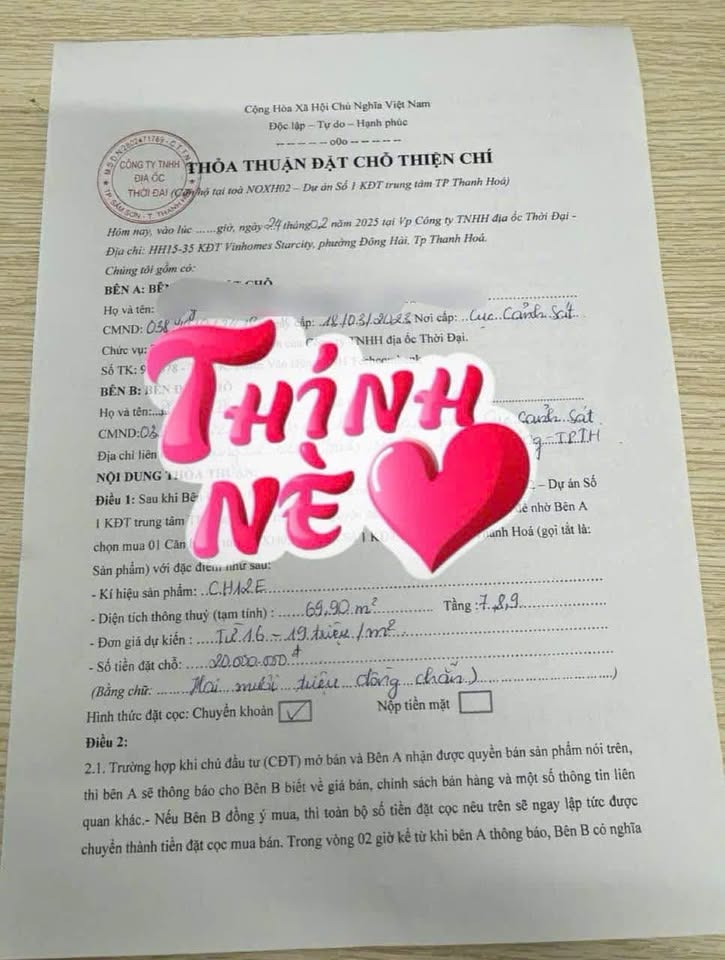 Cộng Hòa Xã Hội Chủ Nghĩa Việt Nam
Độc lập – Tự do – Hạnh phúc
------o0o------
M.S.D.N:2802471769-C.T.T.N
CÔNG TY TNHH
ĐỊA ỐC
THỜI ĐẠI
TP. SẦM SƠN - T. THANH HOÁ
THỎA THUẬN ĐẶT CHỖ THIỆN CHÍ
(Căn hộ tại toà NOXH02 – Dự án Số 1 KĐT trung tâm TP Thanh Hoá)
Hôm nay, vào lúc ......giờ, ngày 24 tháng 02 năm 2025 tại Vp Công ty TNHH địa ốc Thời Đại -
Địa chỉ: HH15-35 KĐT Vinhomes Starcity, phường Đông Hải, Tp Thanh Hoá.
Chúng tôi gồm có:
BÊN A: BÊN ĐẶT CHỖ
Họ và tên:
CMND: 038 cấp: 18/03/2023 Nơi cấp: Cục Cảnh Sát
Chức vụ: TNHH địa ốc Thời Đại.
Số TK: 9
BÊN B: BÊN
Họ và tên:
Cục Cảnh Sát
CMND:03 TPTH
Địa chỉ liên
NỘI DUNG THỎA THUẬN:
Điều 1: Sau khi Bên – Dự án Số
1 KĐT trung tâm nhờ Bên A
chọn mua 01 Căn 1 KĐT Thanh Hoá (gọi tắt là:
Sản phẩm) với đặc điểm như sau:
- Kí hiệu sản phẩm: CH12E
- Diện tích thông thuỷ (tạm tính) : 69,90 m² Tầng : 7,8,9
- Đơn giá dự kiến : Từ 16 - 19 triệu/m²
- Số tiền đặt chỗ: 20.000.000đ
(Bằng chữ: Hai mươi triệu đồng chẵn)
Hình thức đặt cọc: Chuyển khoản ✓ Nộp tiền mặt
Điều 2:
2.1. Trường hợp khi chủ đầu tư (CĐT) mở bán và Bên A nhận được quyền bán sản phẩm nói trên,
thì bên A sẽ thông báo cho Bên B biết về giá bán, chính sách bán hàng và một số thông tin liên
quan khác.- Nếu Bên B đồng ý mua, thì toàn bộ số tiền đặt cọc nêu trên sẽ ngay lập tức được
chuyển thành tiền đặt cọc mua bán. Trong vòng 02 giờ kể từ khi bên A thông báo, Bên B có nghĩa
THÍNH
NÈ